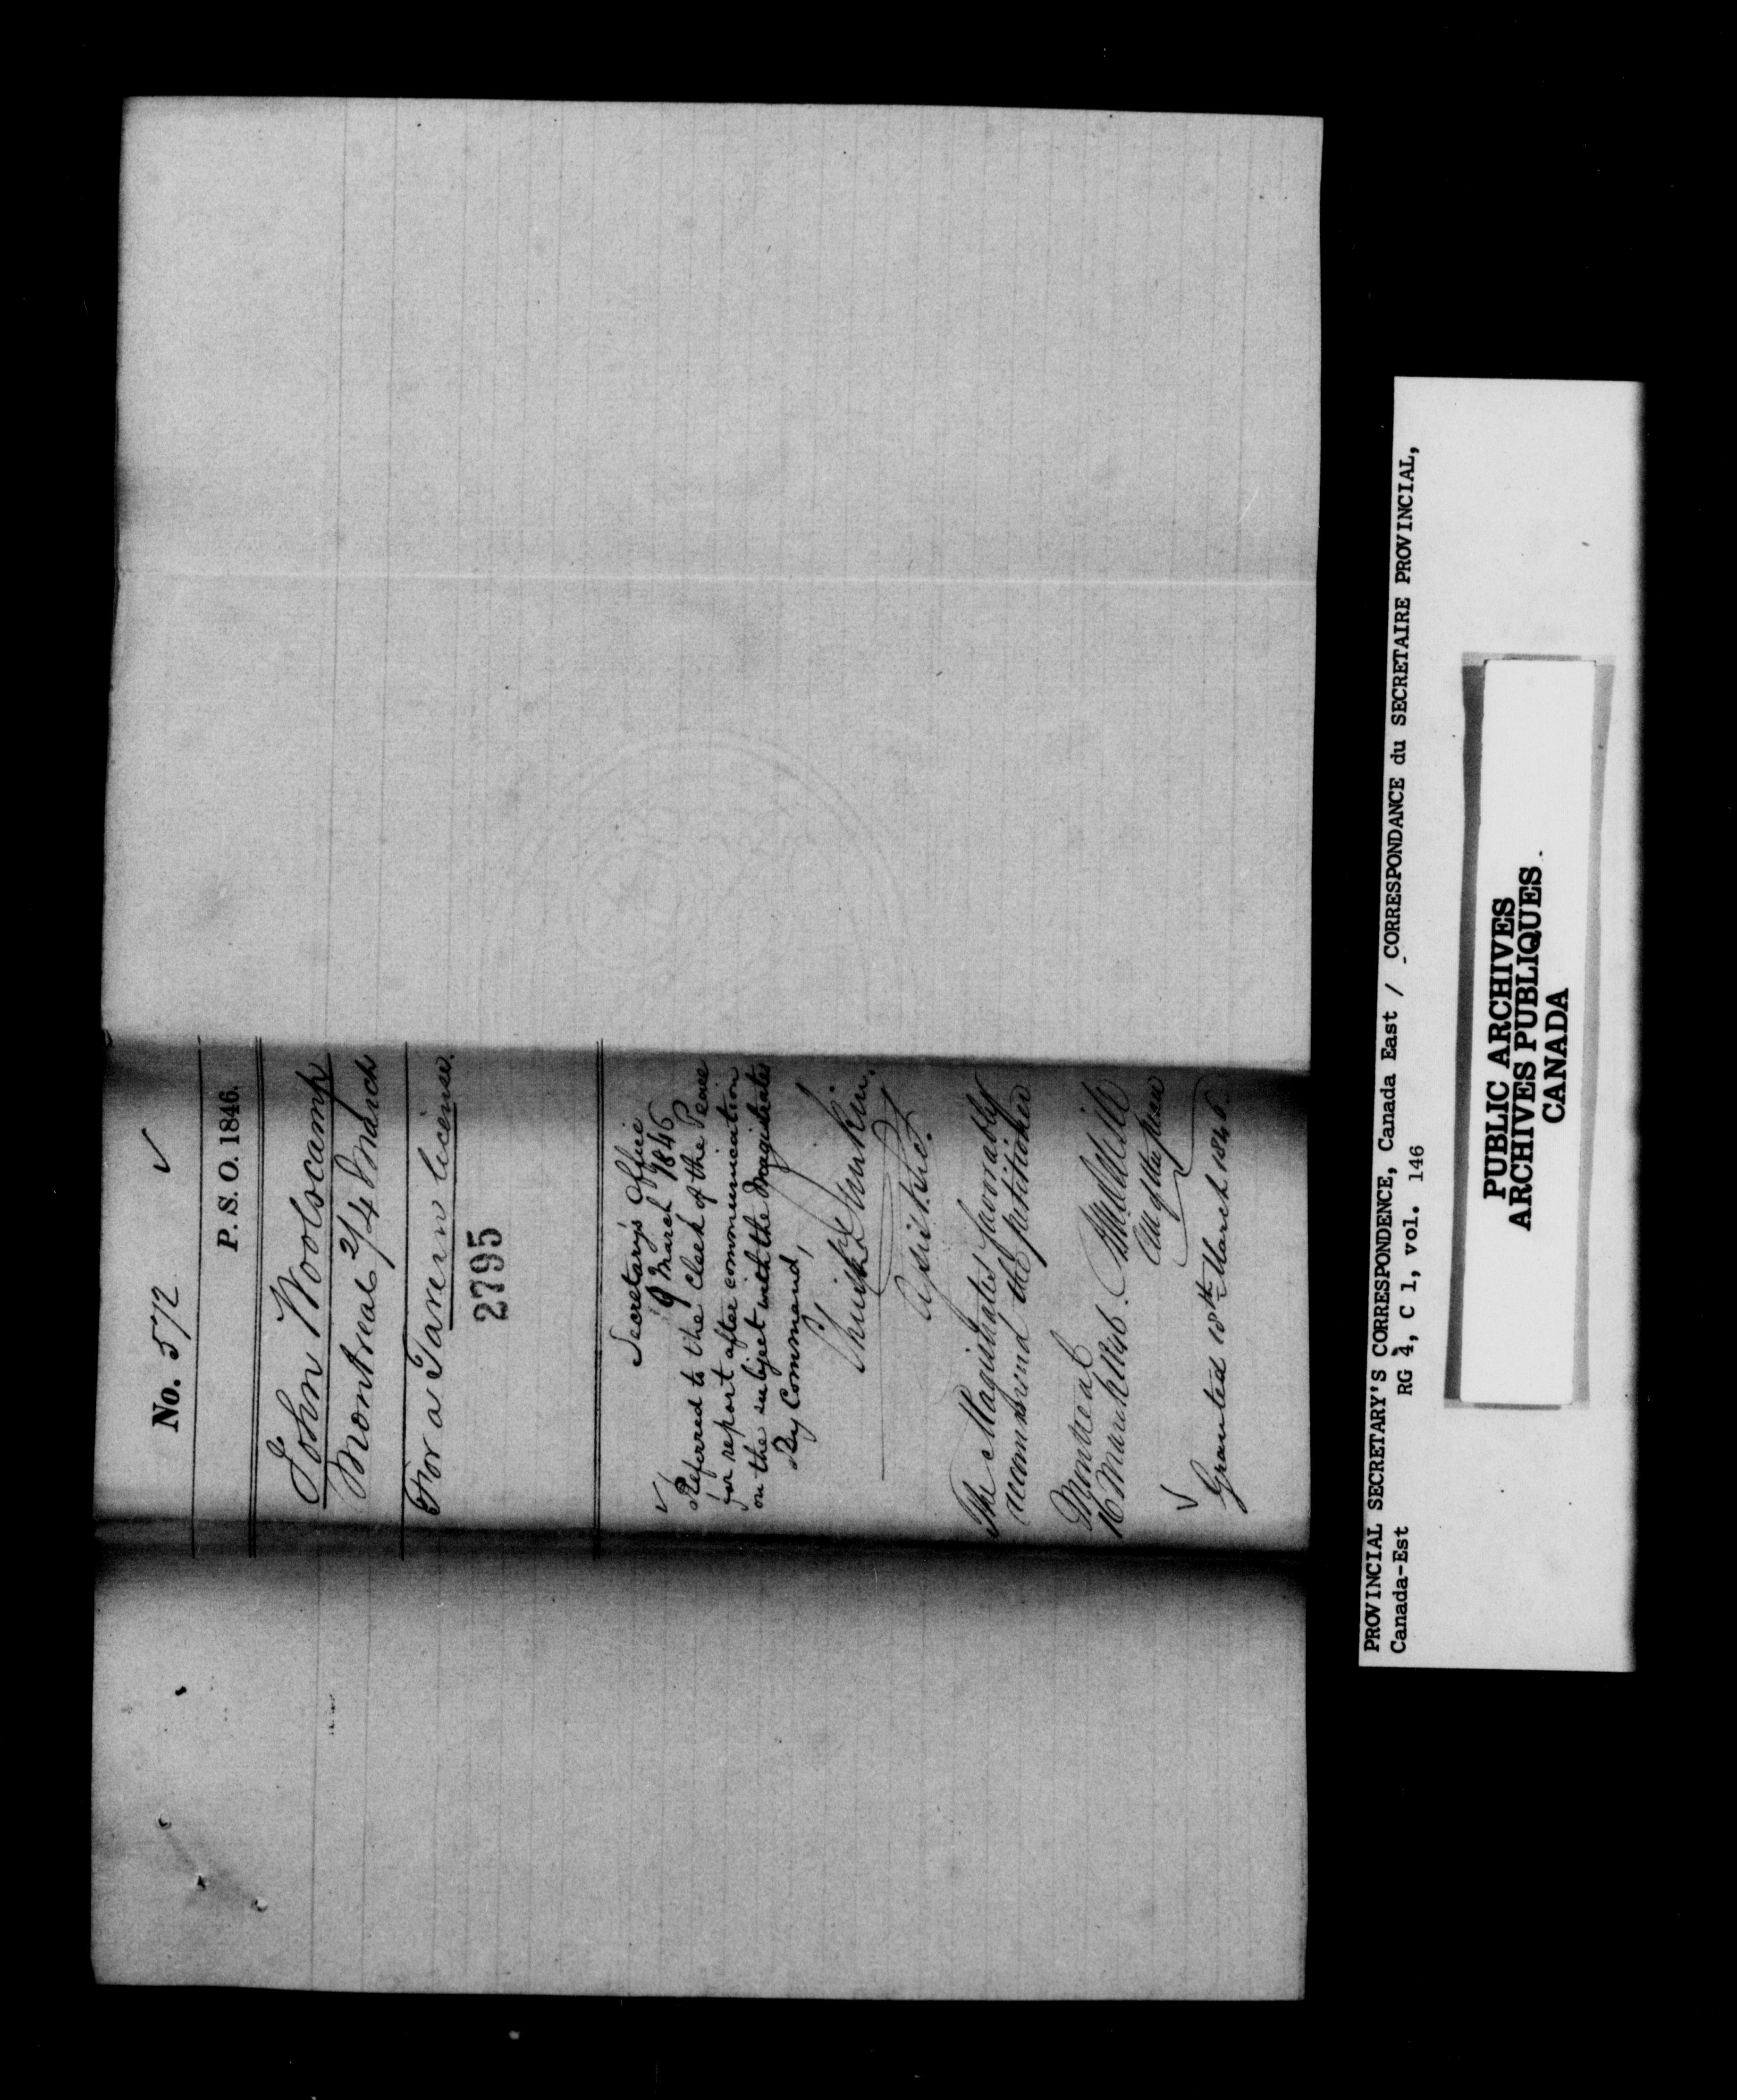 No. 572 ✓
P. S. O. 1846.
John Woolscamp
Montreal 2/4 March
For a Tavern license.
2795
Secretary's Office
9 March 1846
✓
Referred to the Clerk of the Peace
for report after communication
on the subject with the Magistrates
By Command,
Christ Dunkin.
Asst. Sec.
The Magistrates favorably
recommend the petitioner
Montreal
16 March 1846.
Clk of the Peace
✓
Granted 18th March 1846.
PROVINCIAL SECRETARY'S CORRESPONDENCE, Canada East / CORRESPONDANCE du SECRETAIRE PROVINCIAL,
Canada-Est RG 4, C 1, vol. 146
PUBLIC ARCHIVES
ARCHIVES PUBLIQUES
CANADA